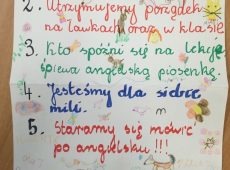 2. Utrzymujemy porządek
na ławkach oraz w klasie
3. Kto spóźni się na lekcję
śpiewa angielską piosenkę.
4. Jesteśmy dla siebie
mili.
5. Staramy się mówić
po angielsku !!!